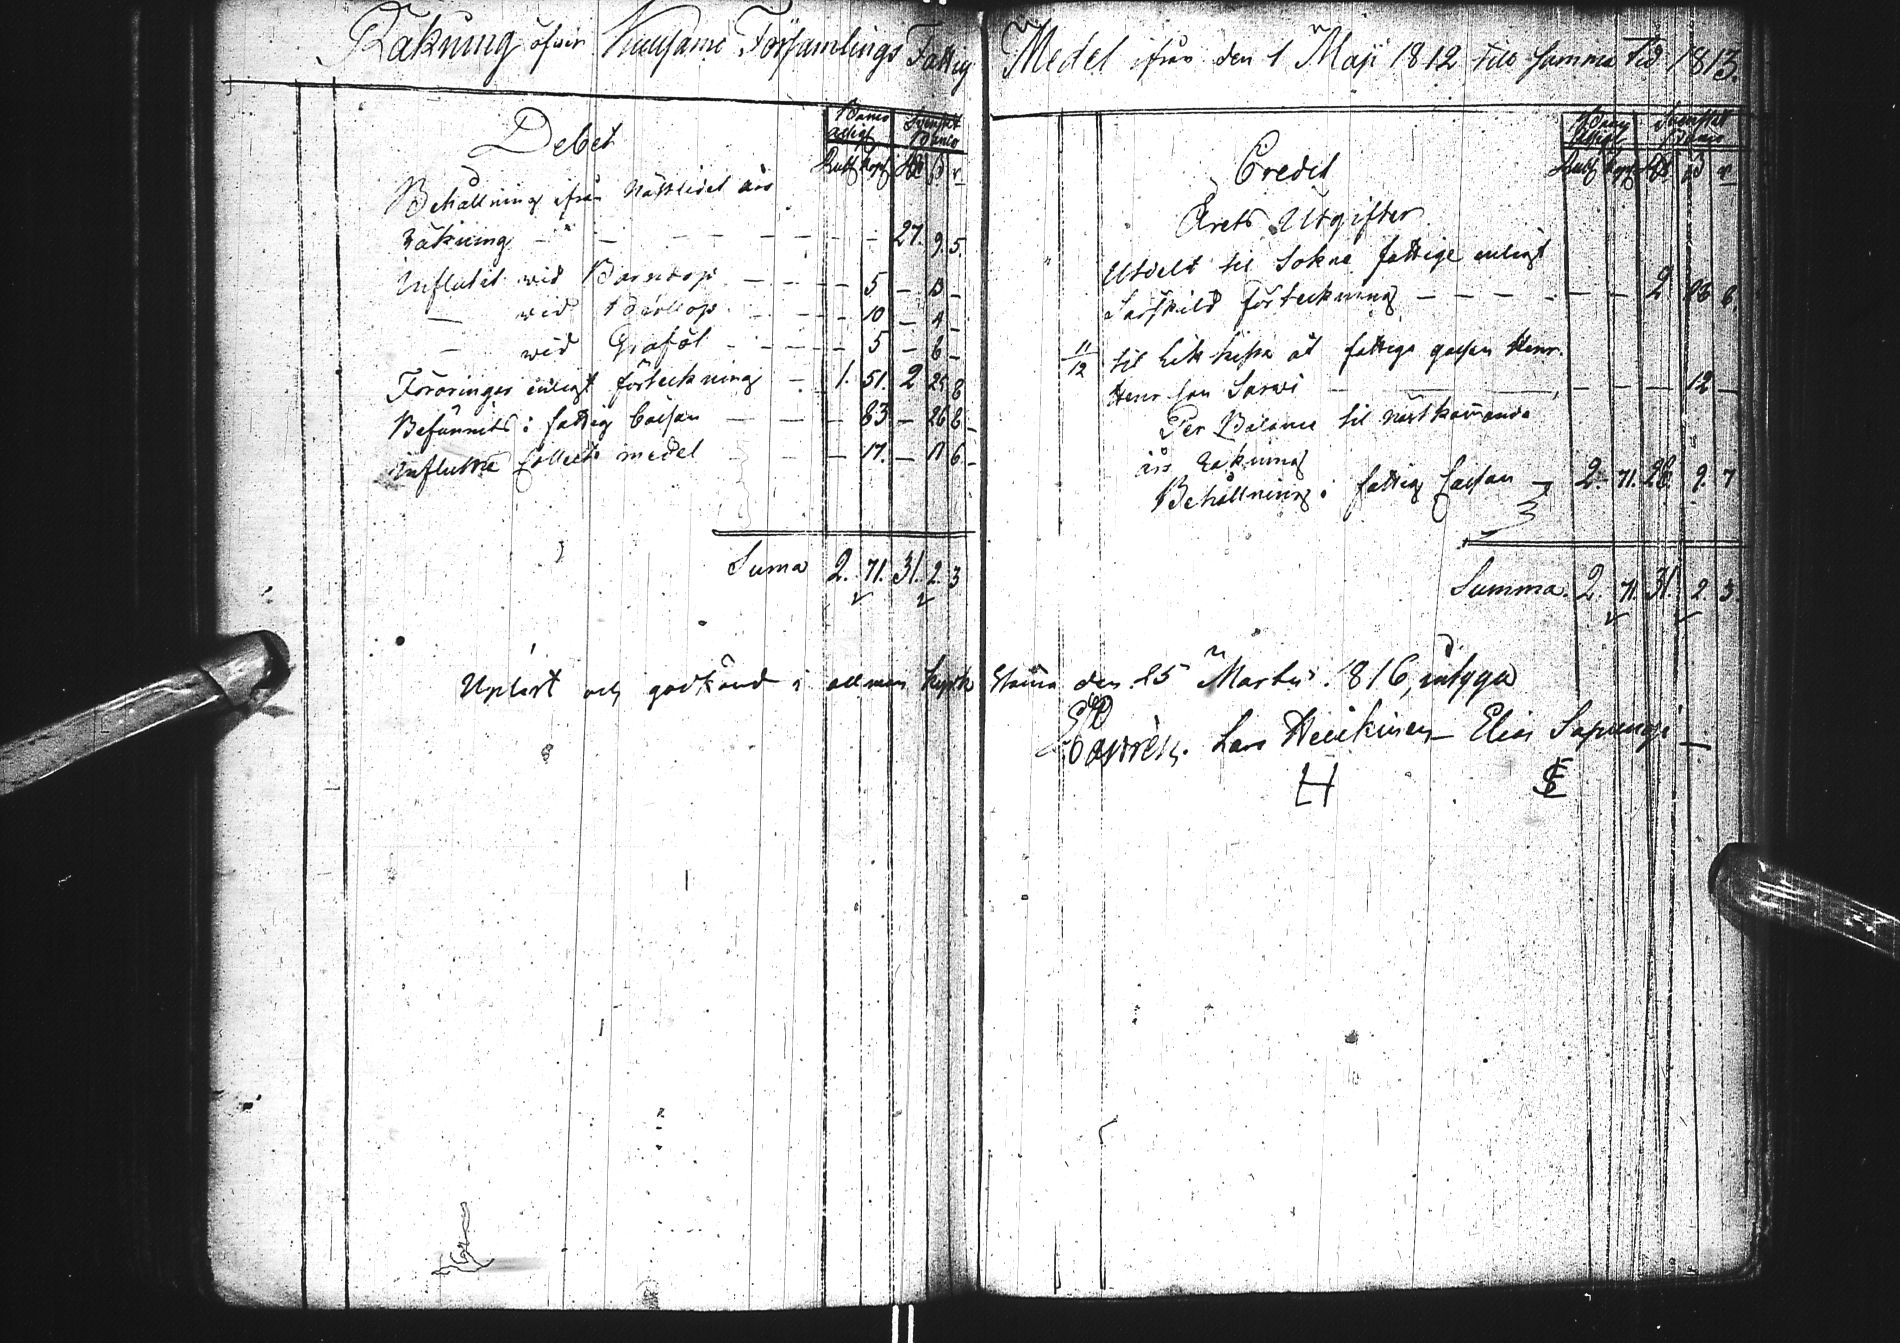 Räkning öfwer Kuusamo Församlings Fattig Medel ifrån den 1 Maji 1812 till samma Tid 1813.
Debet
Banco Assig Svenskt Banco
Rub Kop Rd ß r
Behållning ifrån nästledet års
Räkning — — — — — — 27. 9. 5.
Influtit wid Barndop — — — 5 — 13 —
— wid Bröllop — — — 10 — 4 —
— wid Graföl — — — 5 — 6 —
Föräringar enligt förteckning — 1. 51. 2 25 8
Befunnits i fattig Cassan — — — 83 — 26 8 —
Influtne Collect medel — — — 17. — 11 6 —
Suma 2. 71. 31. 2 3
Credit
Banco Assig Svenskt Banco
Rub Kop Rd ß r
Årets Utgifter
Utdelt til Sokne fattige enligt
Särskild förteckning — — — — — 2 28 8.
11/12 til Lik kista åt fattige gossen Henr.
Henr son Sarwi — — — — — 12 —
Per Balance til nästkommande
års Räkning
Behållning i fattig Cassan — 2. 71. 28. 9. 7
Summa. 2. 71. 31. 2 3.
Upläst och godkänd i allmän Kyrko Stäma den 25 Martii 1816, intyga
Lars Heikkinen — Elias Sapungi —
H